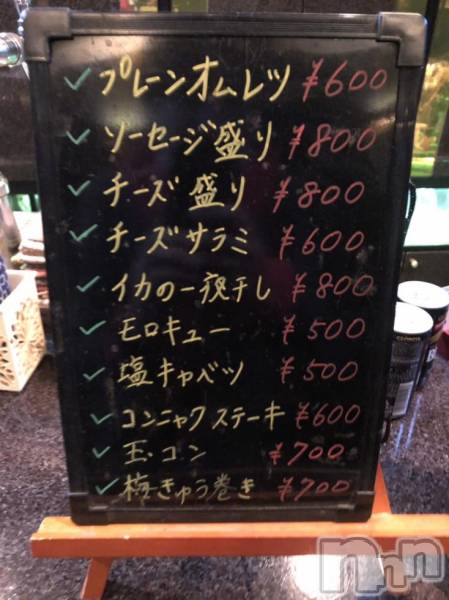 ✓ プレーンオムレツ ¥600
✓ ソーセージ盛り ¥800
✓ チーズ盛り ¥800
✓ チーズサラミ ¥600
✓ イカの一夜干し ¥800
✓ モロキュー ¥500
✓ 塩キャベツ ¥500
✓ コンニャクステーキ ¥600
✓ 玉コン ¥700
✓ 梅きゅう巻き ¥700
nnn